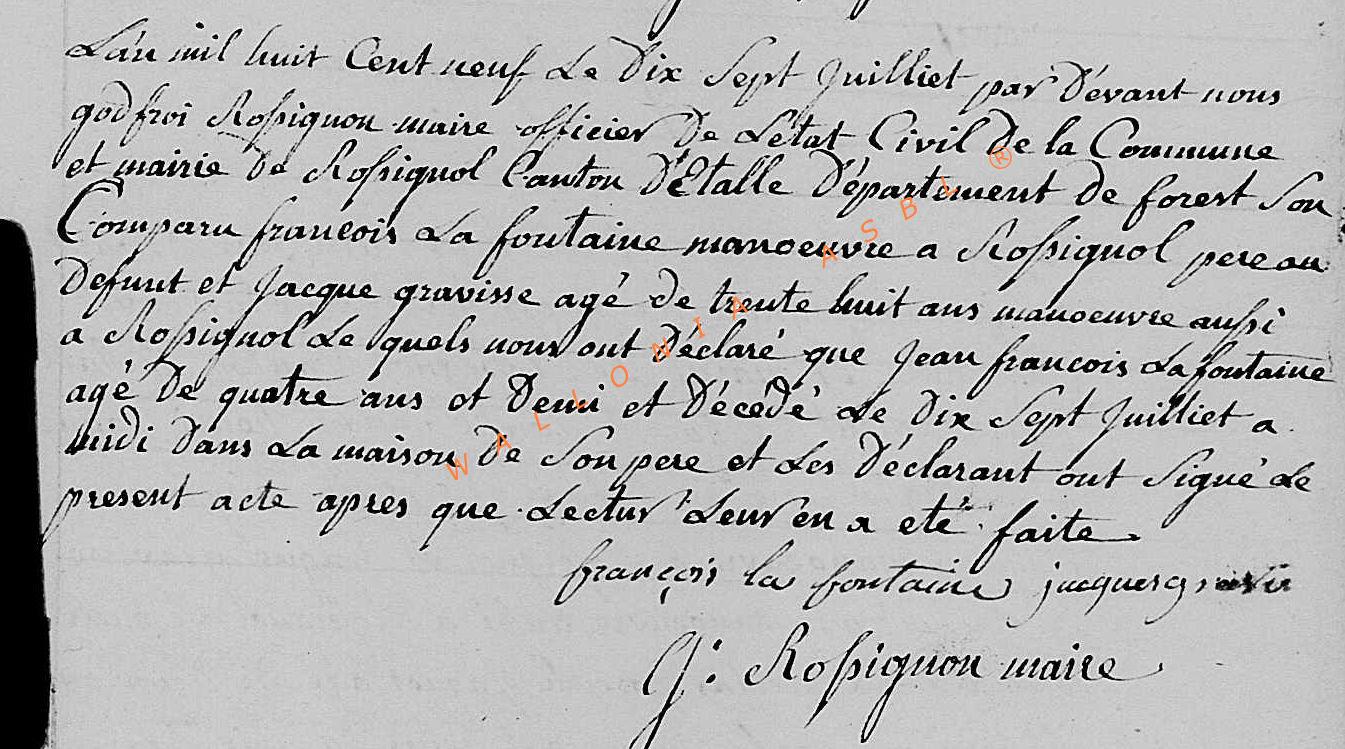 L'an mil huit Cent neuf Le Dix Sept Juilliet par Dévant nous
godfroi Rossignon maire officier De Létat Civil De la Commune
et mairie De Rossignol Canton D'Etalle Département De forest Son
Comparu francois La fontaine manoeuvre a Rossignol pere au
Defunt et Jacque gravisse agé de trente huit ans manoeuvre aussi
a Rossignol Le quels nous ont Déclaré que Jean francois La fontaine
agé De quatre ans et Demi et Décédé Le Dix Sept Juilliet a
midi Dans La maison De Son pere et Les Déclarant ont Signé Le
present acte apres que Lectur Leur en a eté faite
françois la fontaine jacques
G: Rossignon maire
WALLONIA ASBL ®